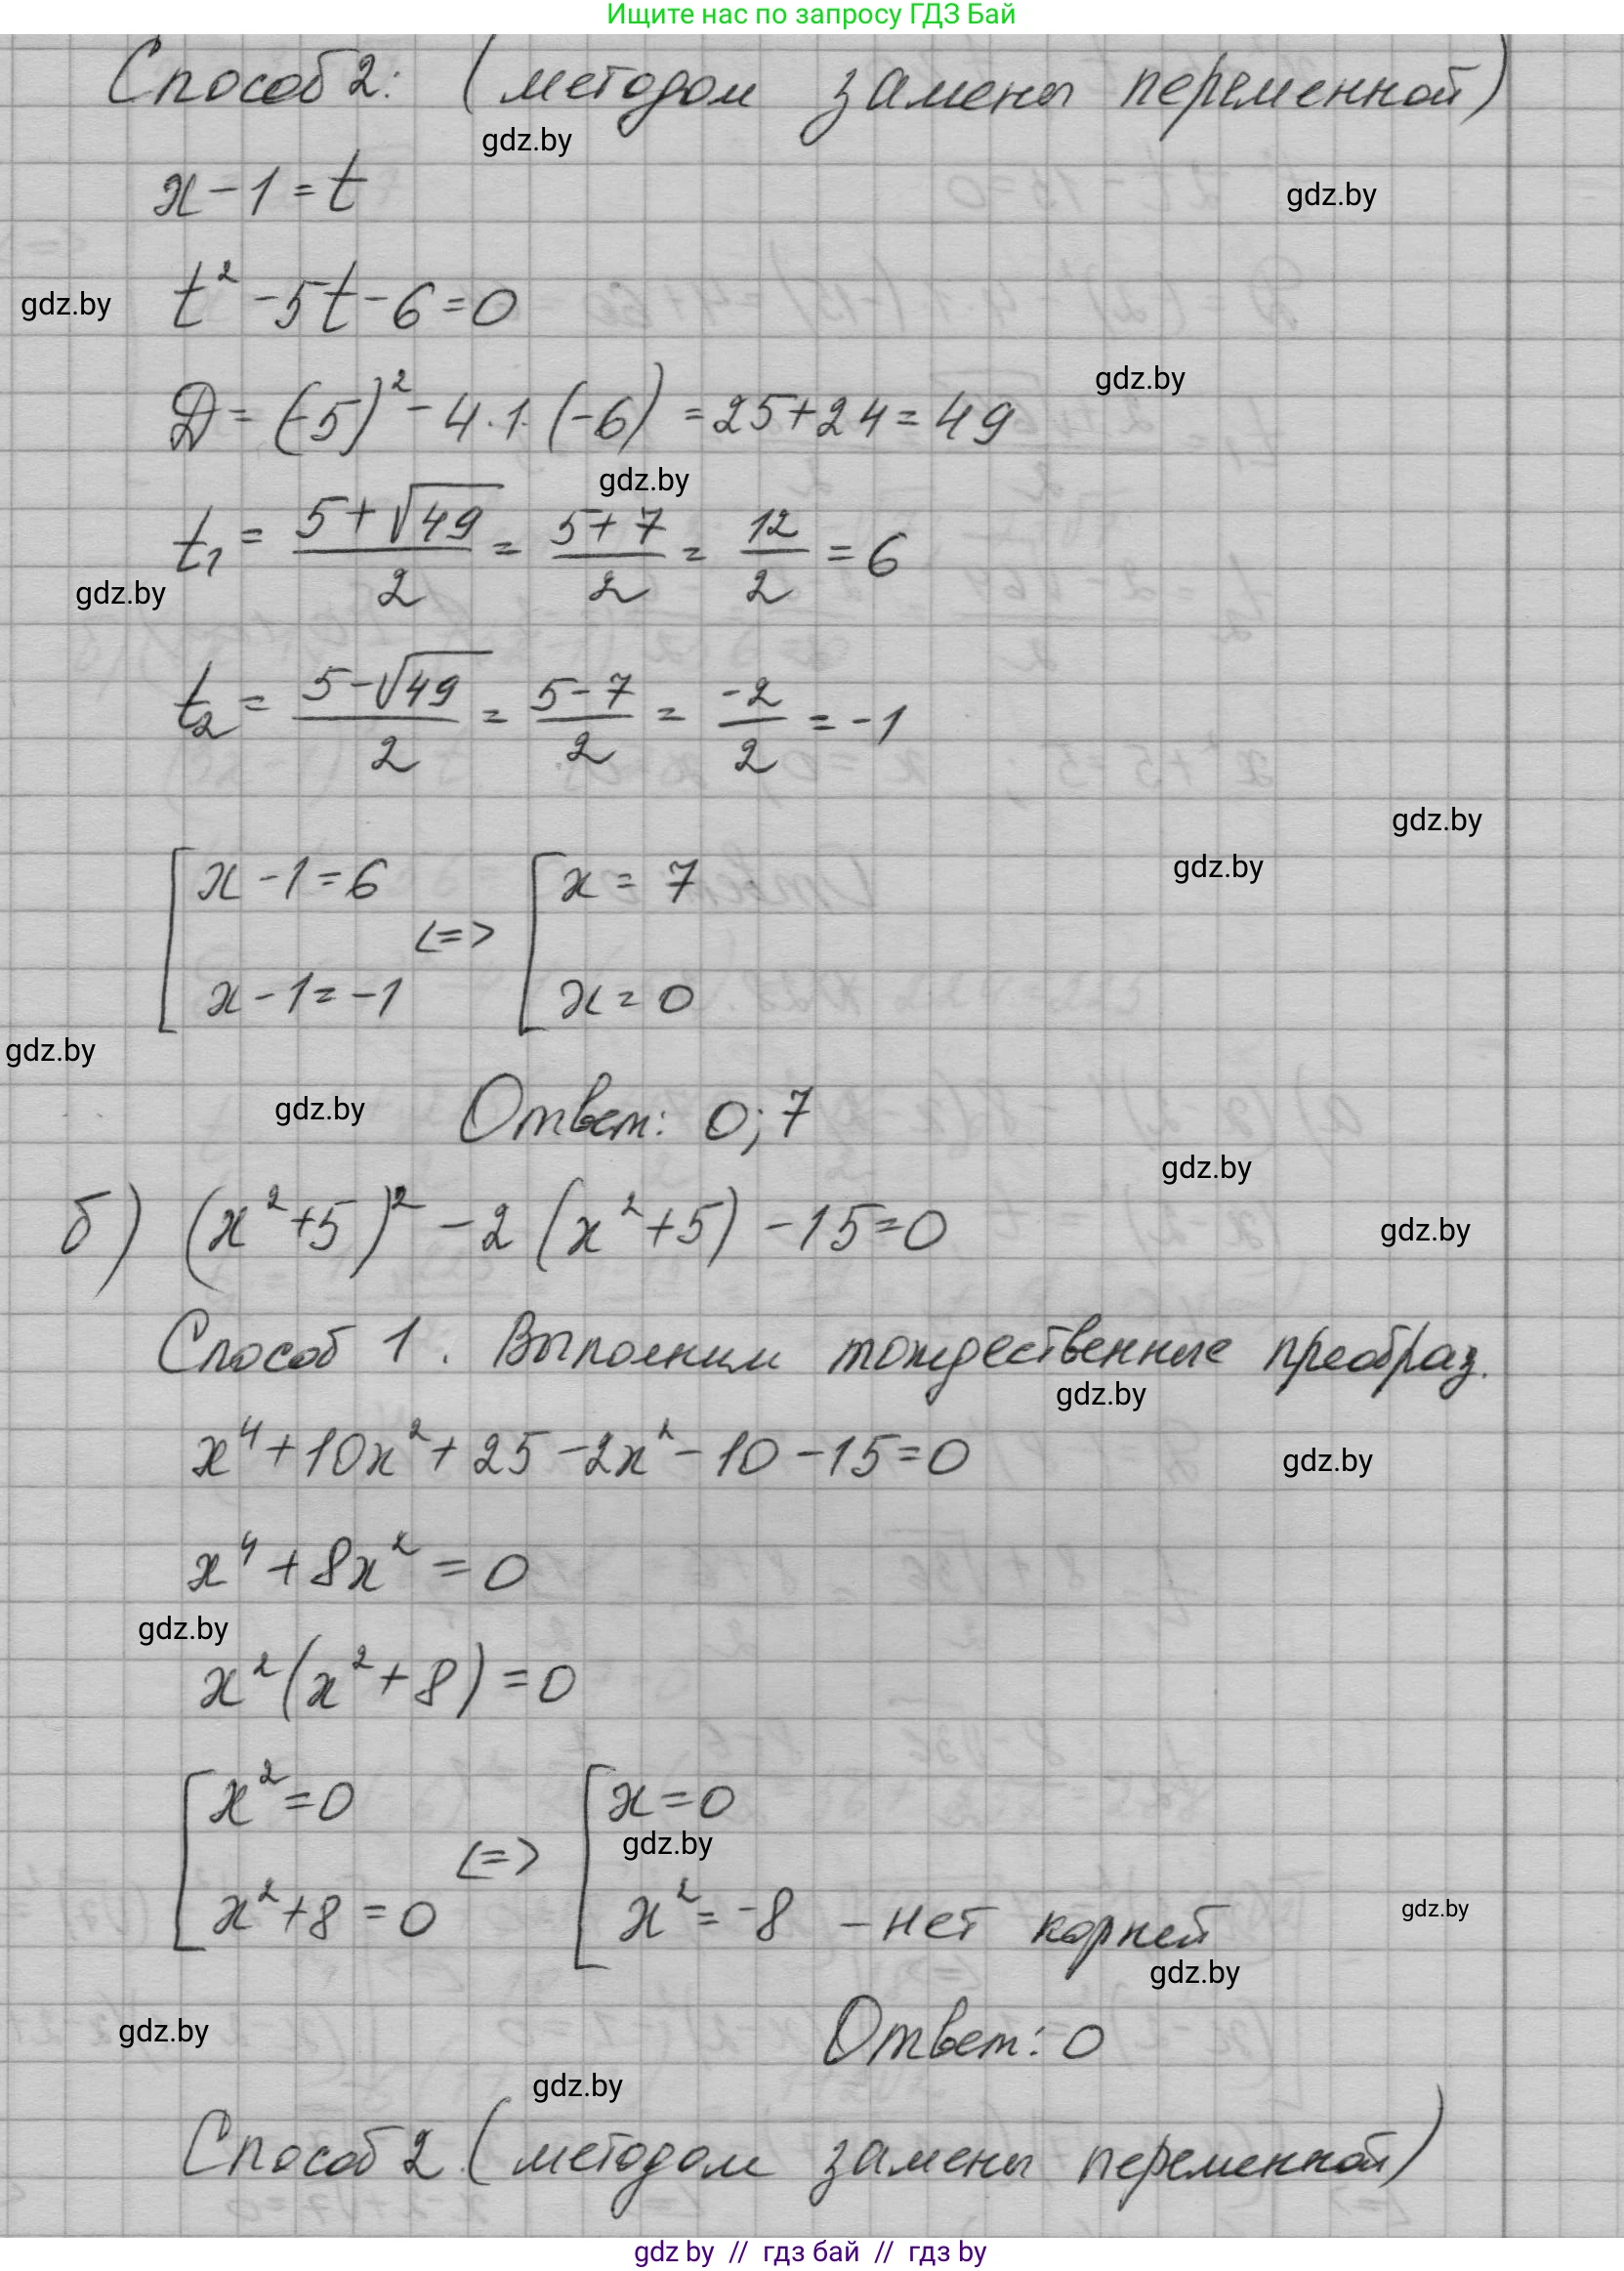 Ищите нас по запросу ГДЗ Бай
Способ 2: (методом замены переменной)
gdz.by
x - 1 = t
gdz.by
t² - 5t - 6 = 0
gdz.by
gdz.by
Д = (-5)² - 4·1·(-6) = 25 + 24 = 49
gdz.by
t₁ = (5 + √49)/2 = (5 + 7)/2 = 12/2 = 6
gdz.by
t₂ = (5 - √49)/2 = (5 - 7)/2 = -2/2 = -1
gdz.by
gdz.by
[ x - 1 = 6 <=> [ x = 7
x - 1 = -1 x = 0
gdz.by
gdz.by
Ответ: 0; 7
gdz.by
б) (x² + 5)² - 2 (x² + 5) - 15 = 0
gdz.by
Способ 1. Выполним тождественные преобраз.
gdz.by
x⁴ + 10x² + 25 - 2x² - 10 - 15 = 0
gdz.by
x⁴ + 8x² = 0
gdz.by
x² (x² + 8) = 0
[ x² = 0 <=> [ x = 0
gdz.by
x² + 8 = 0 x² = -8 - нет корней
gdz.by
gdz.by
gdz.by
Ответ: 0
gdz.by
Способ 2 (методом замены переменной)
gdz by // гдз бай // гдз by